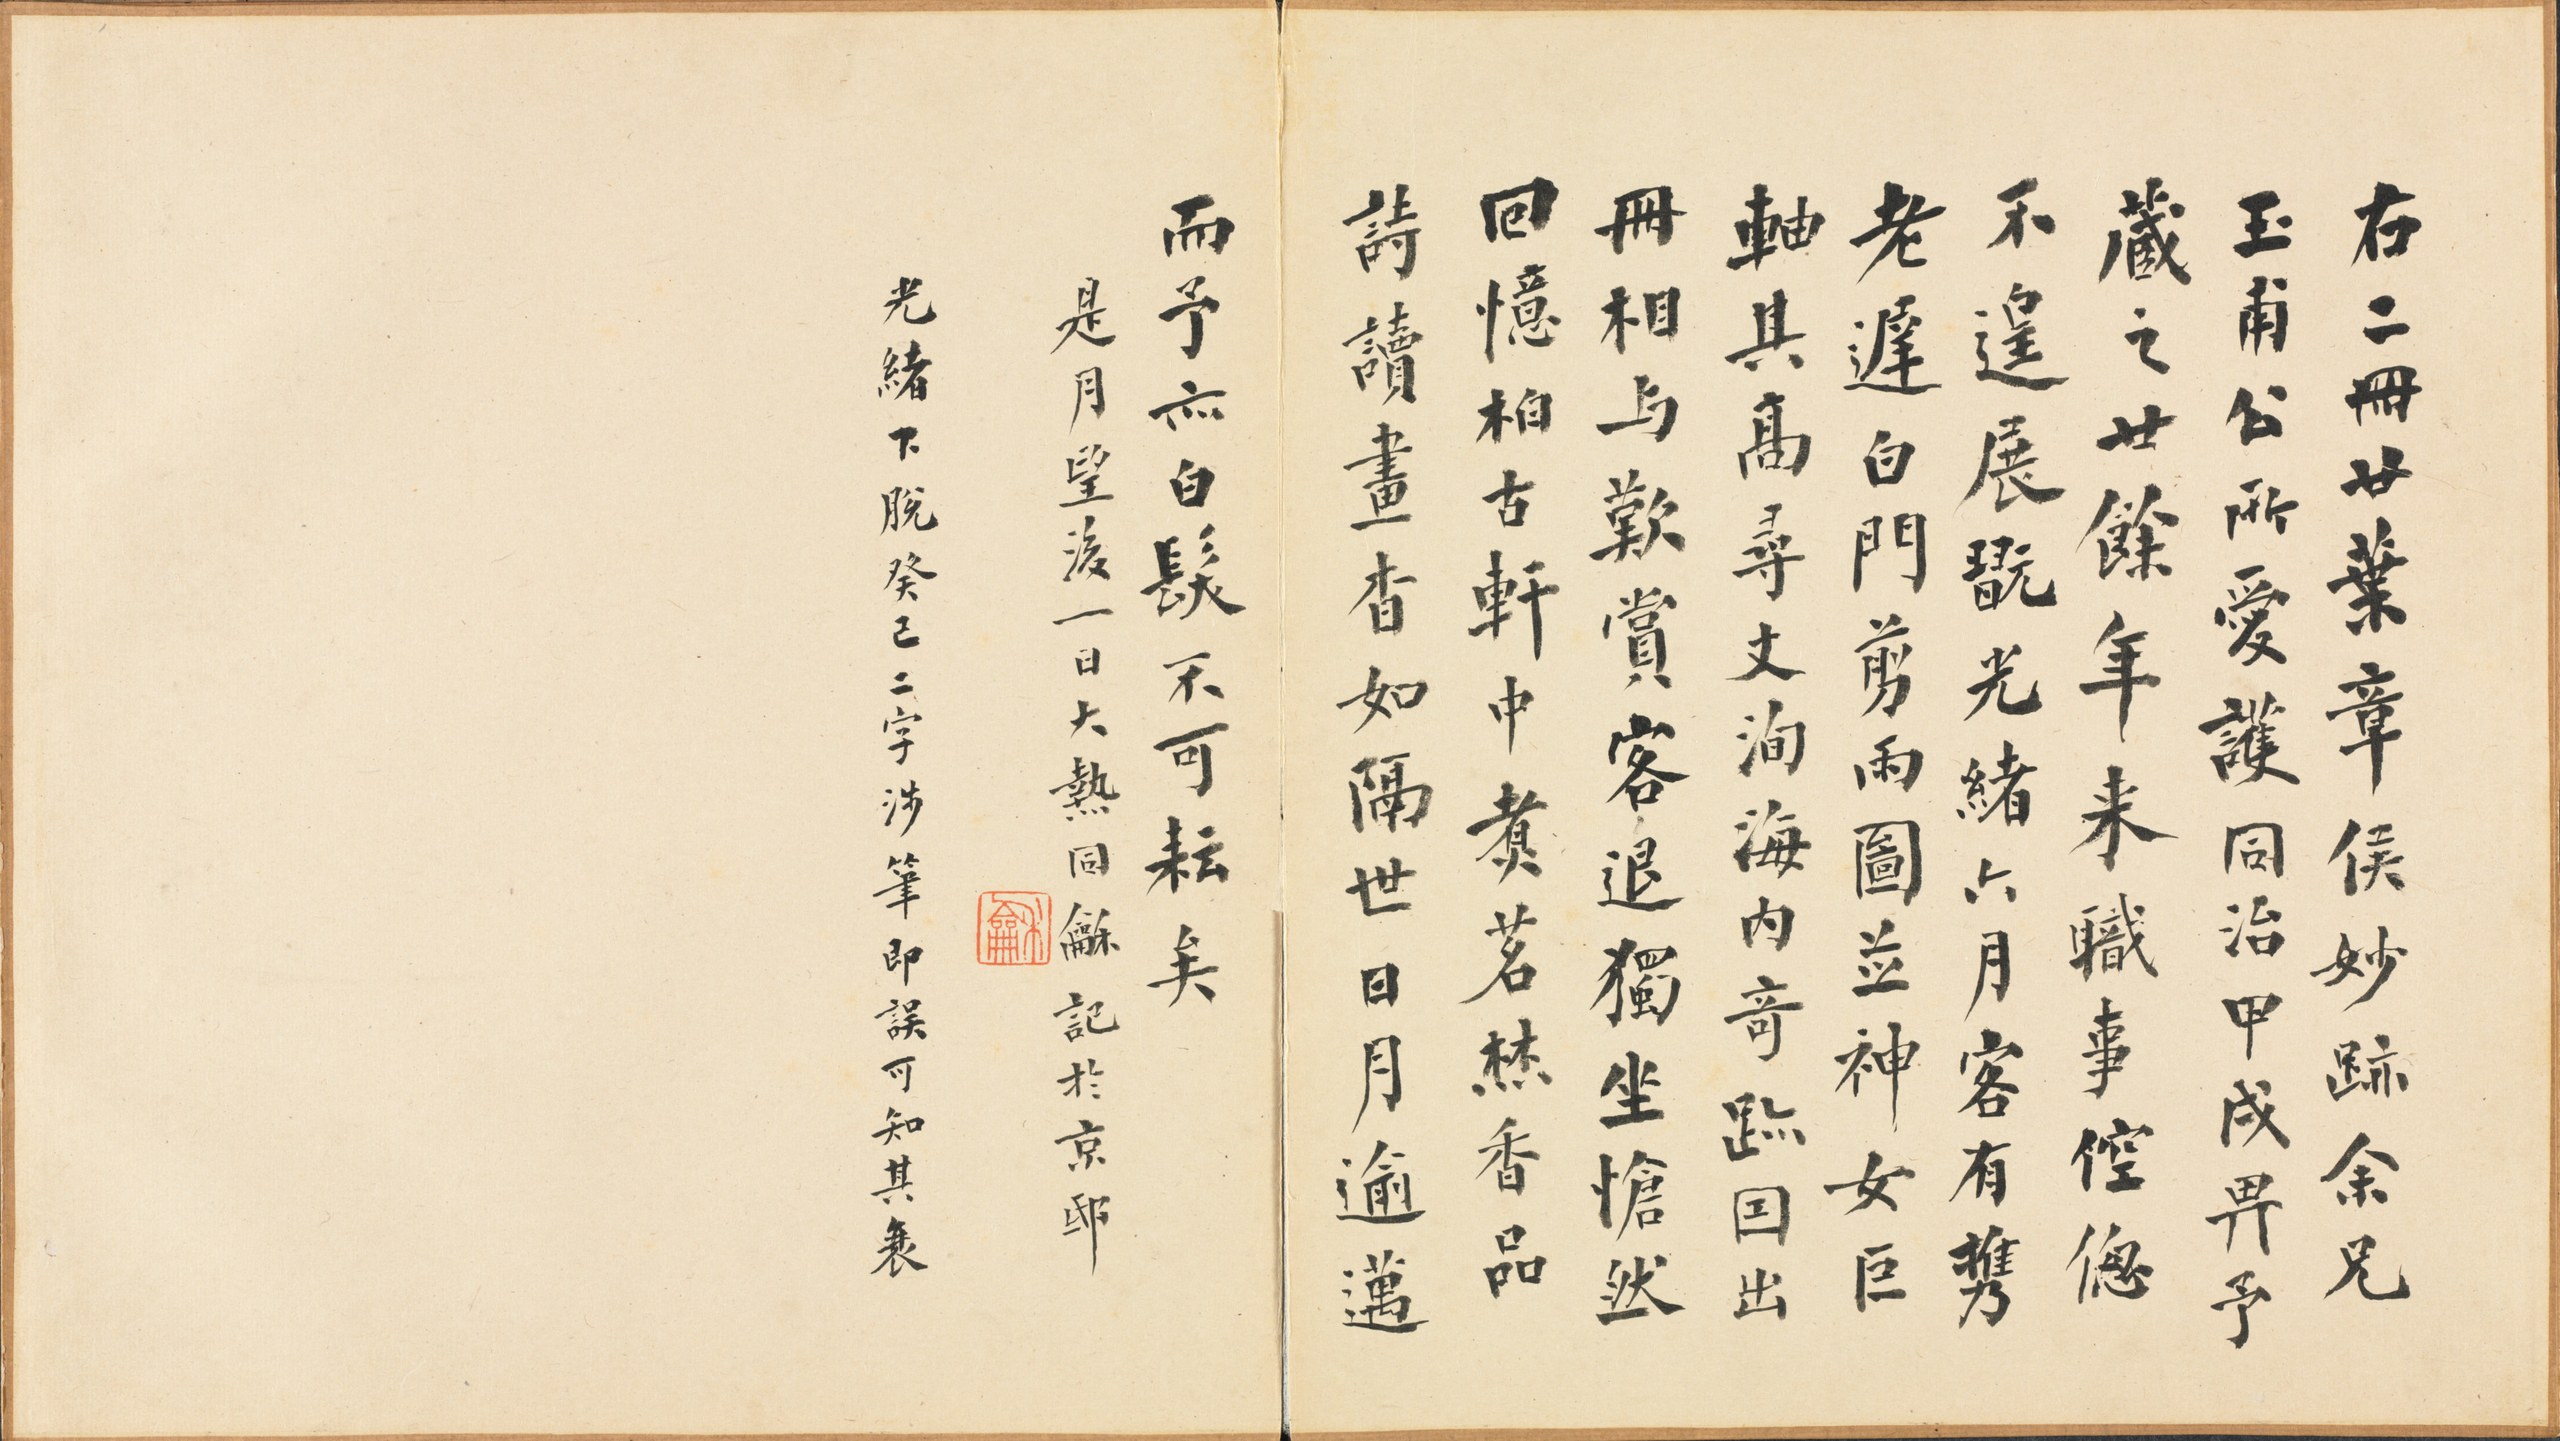 右二冊廿葉章侯妙跡余兄
玉甫公所愛護同治甲戌畀予
蔵之廿餘年来職事倥傯
不遑展翫光緒六月客有攜
老遲白門剪雨圖並神女巨
軸其高尋丈洵海内奇跡因出
冊相与歎賞客退獨坐愴然
回憶柏古軒中煮茗焚香品
詩讀畫杳如隔世日月逾邁
而予亦白髮不可耘矣
是月望後一日大熱同龢記於京邸
龢
光緒下脫癸巳二字涉筆即誤可知其衰